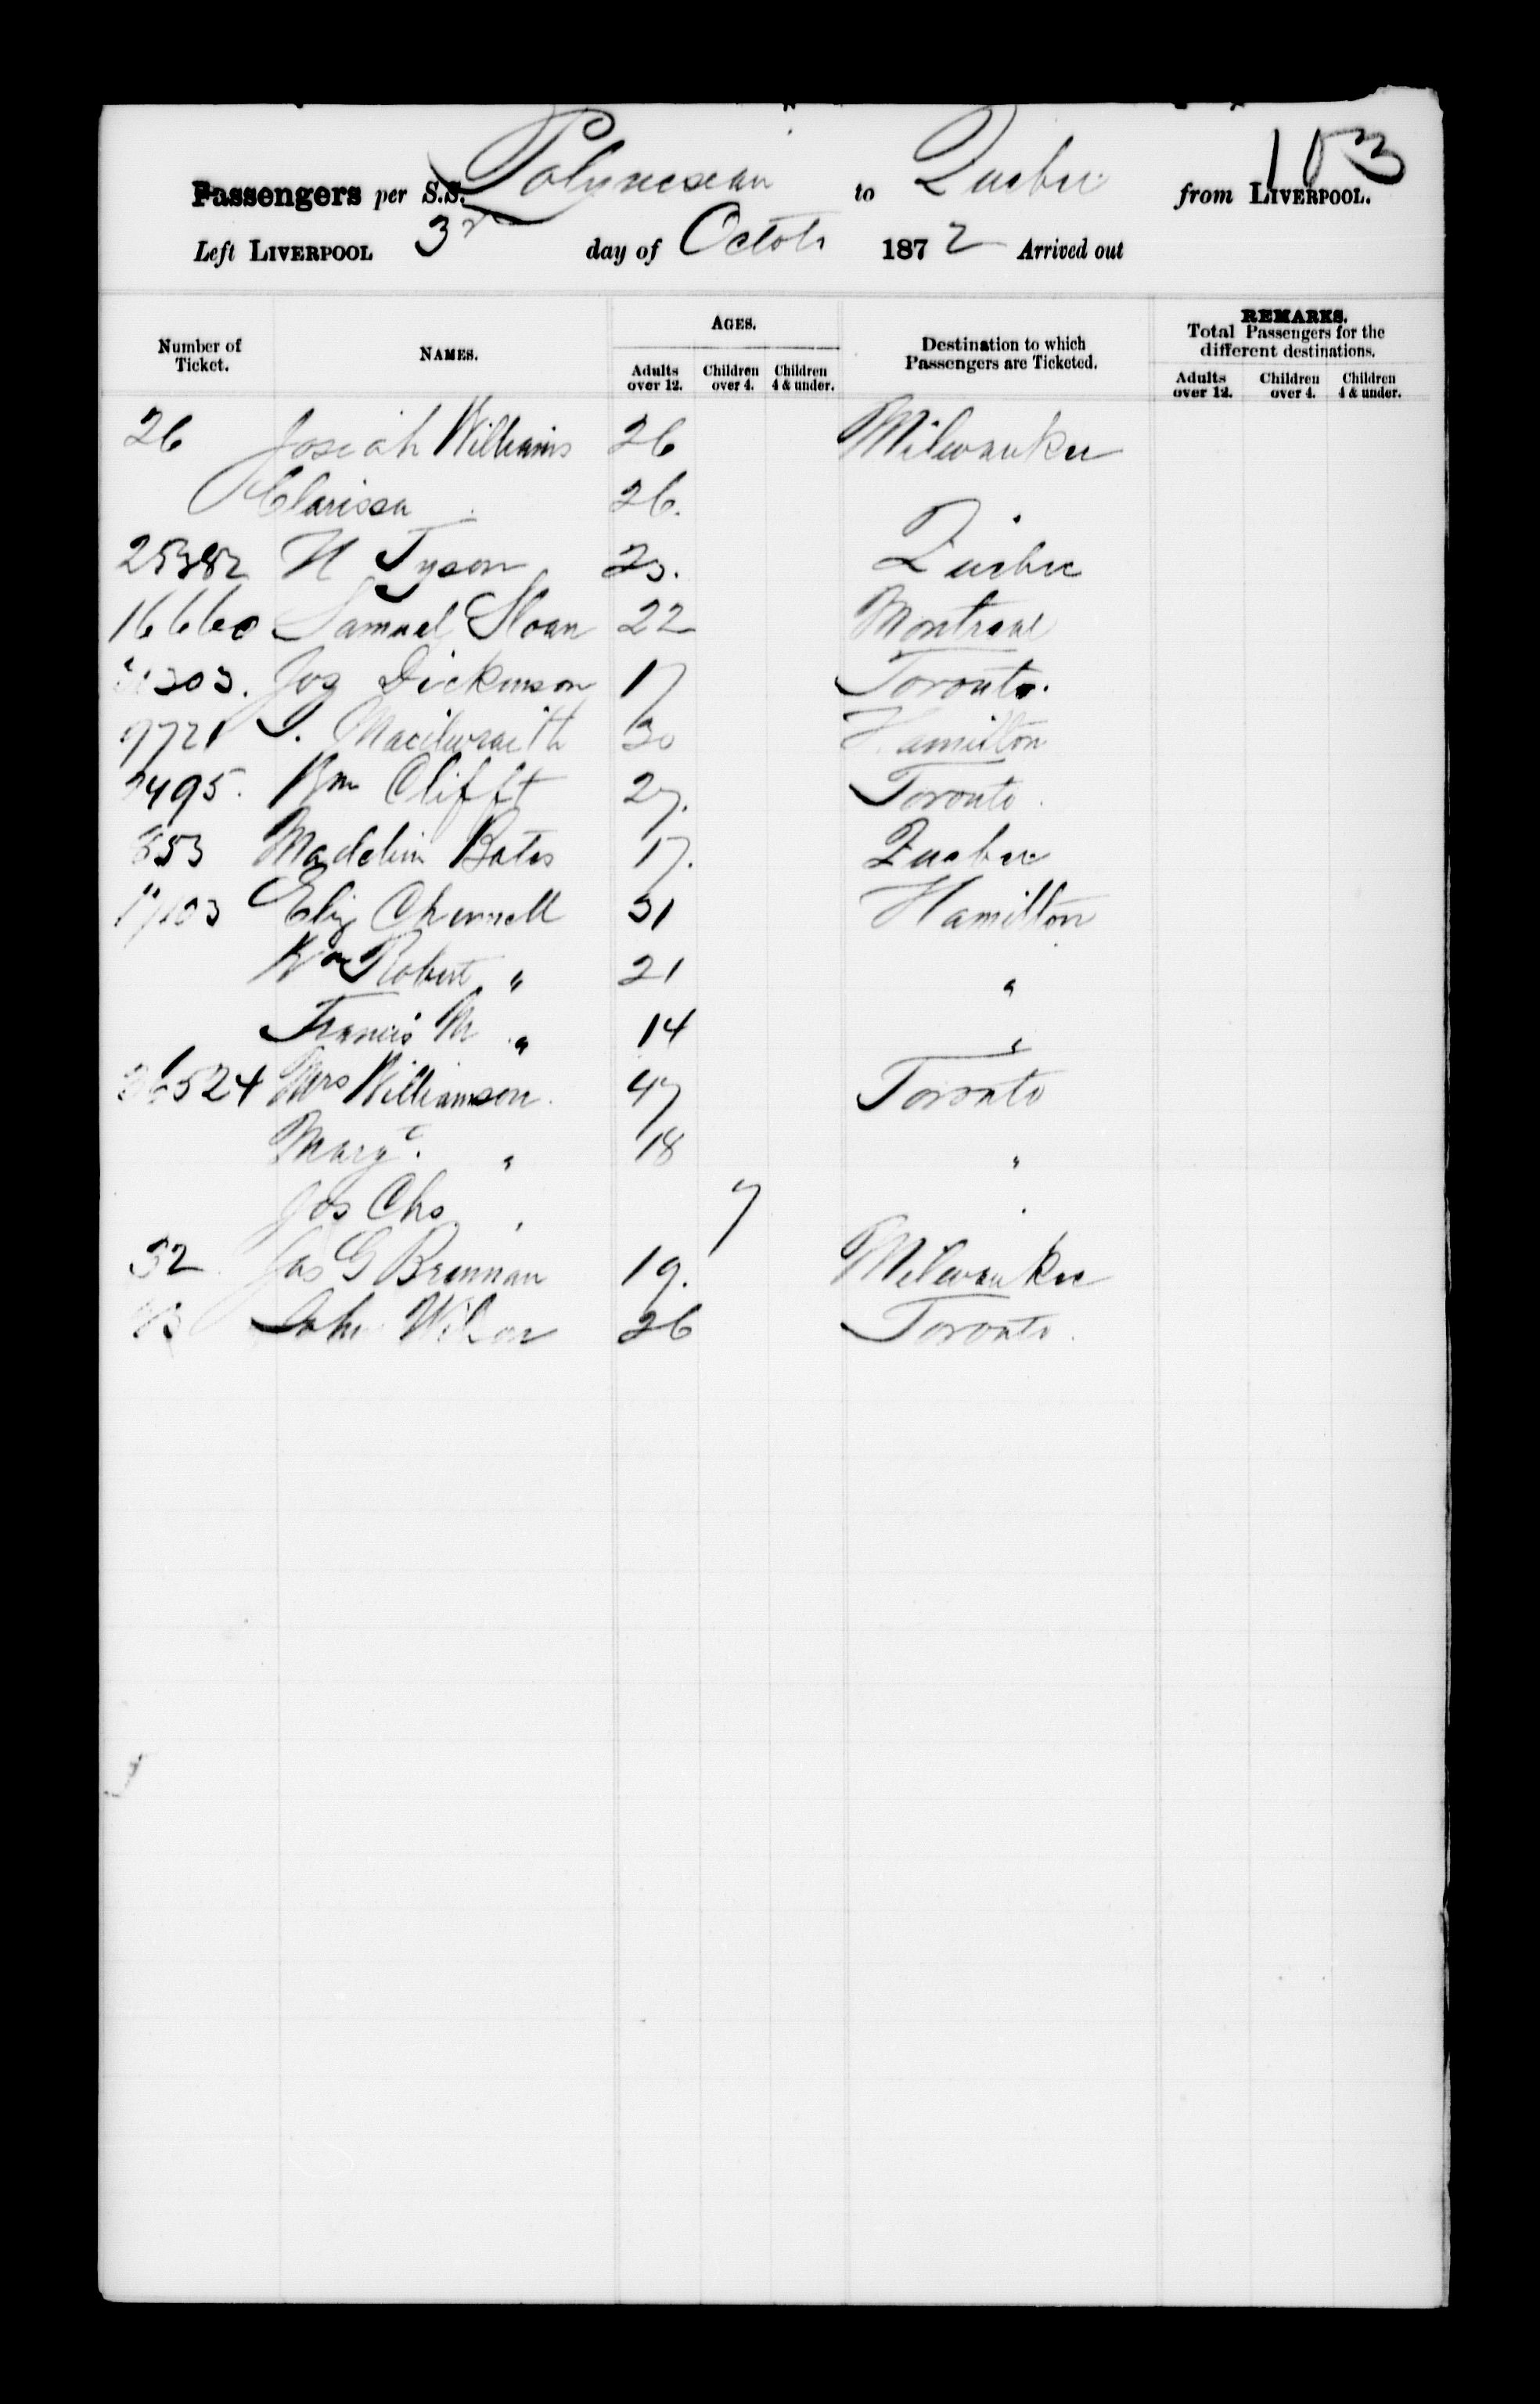 103
Passengers per S.S. Polynesian to Quebec from LIVERPOOL.
Left LIVERPOOL 3rd day of Octobr 1872 Arrived out
Number of Ticket. NAMES. AGES. Adults over 12. Children over 4. Children 4 & under. Destination to which Passengers are Ticketed. REMARKS. Total Passengers for the different destinations. Adults over 12. Children over 4. Children 4 & under.
26 Josiah Williams 26 Milwaukee
Clarissa 26.
25382 H Tyson 23. Quebec
16660 Samuel Sloan 22 Montreal
Jos Dickinson 17 Toronto.
9721 Macilwraith 30 Hamilton
Wm Clifft 27. Toronto.
853 Madelin Bates 17. Quebec
Eliz Chernell 51 Hamilton
Wm Robert " 21 "
Francis M " 14 "
26524 Mrs Williamson. 47 Toronto
Margt. " 18 "
Jos Chs " 7 "
32 Jas G Brennan 19. Milwaukee
John Wilson 26 Toronto.